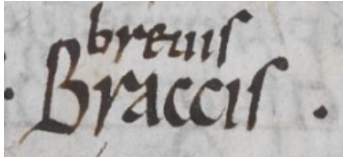 breuis
·Braccis·